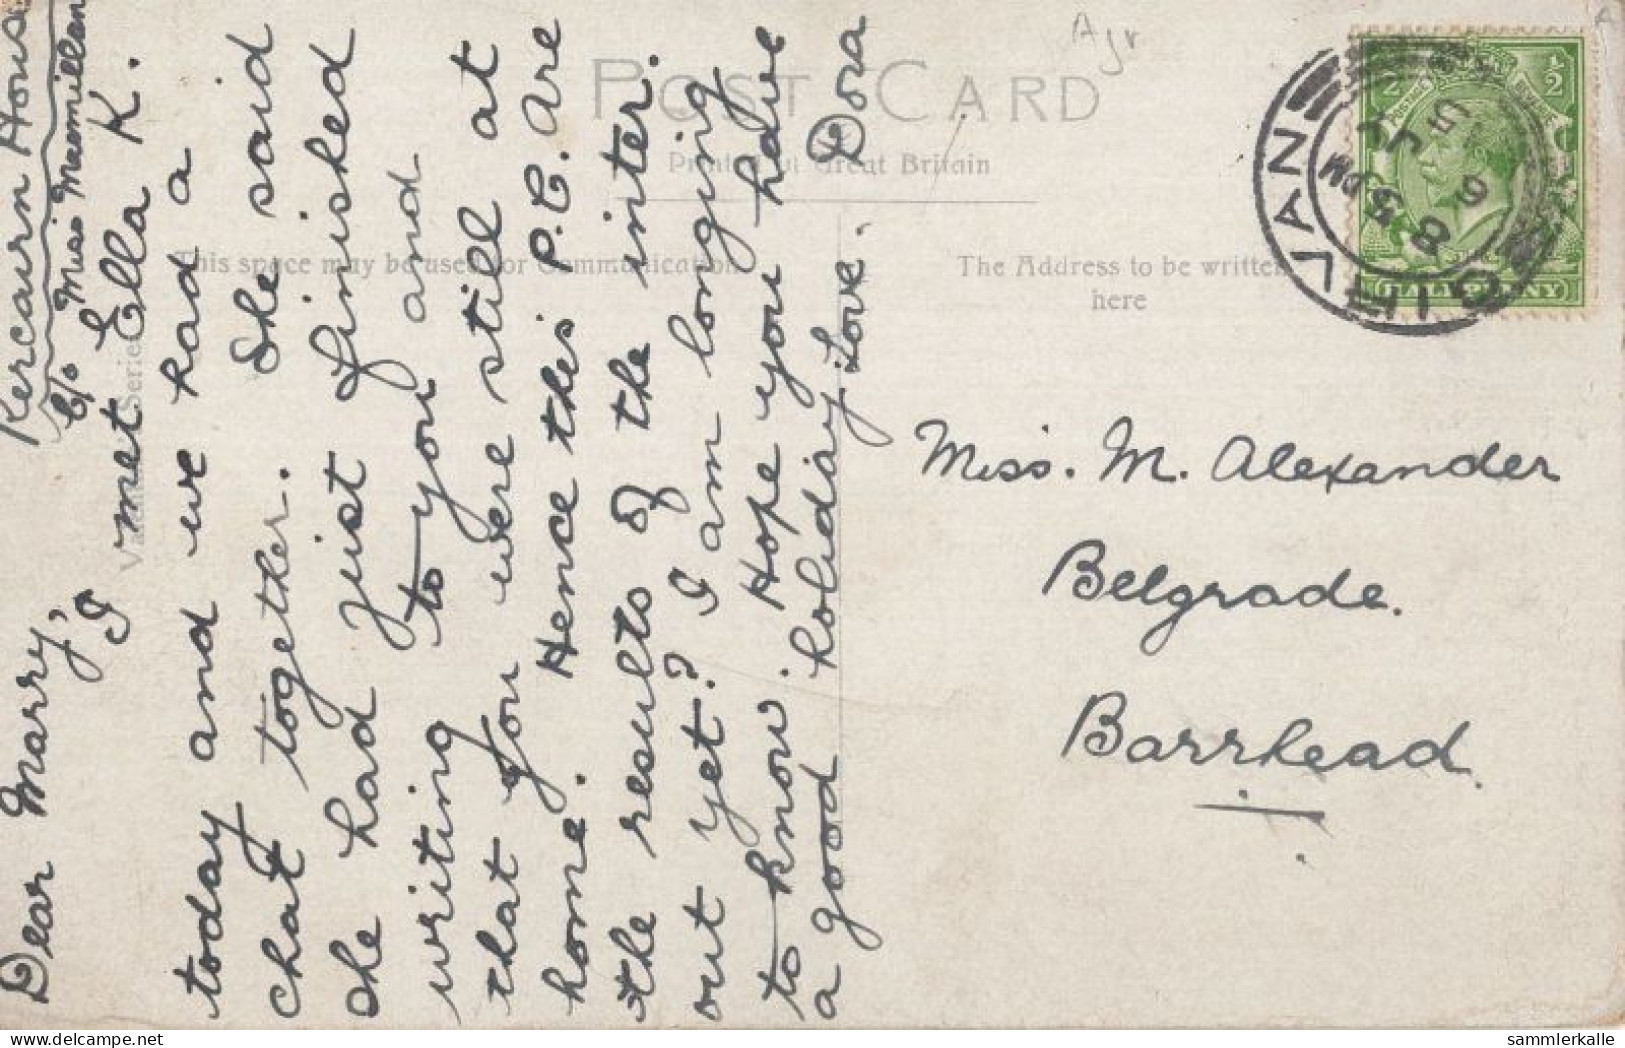 Kercairn House
c/o Miss Macmillan
Dear Marry,
I met Ella K.
today and we had a
chat together. She said
she had just finished
writing to you and
that you were still at
home. Hence this P.C. Are
the results of the inter.
out yet? I am longing
to know. Hope you have
a good holiday. Love. Dora
Ayr
POST CARD
Printed in Great Britain
This space may be used for Communication
The Address to be written
here
Series
GIRVAN
8 30 PM
6 JY
½ ½
POSTAGE REVENUE
HALFPENNY
Miss. M. Alexander
Belgrade.
Barrhead.
sammlerkalle